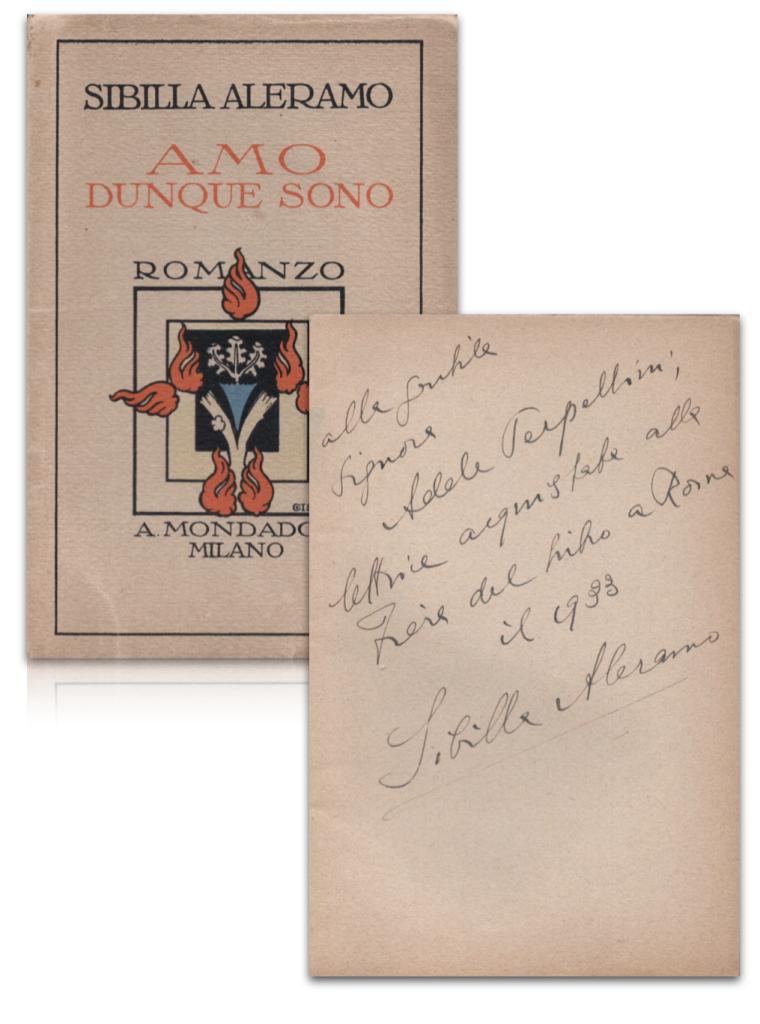 SIBILLA ALERAMO
AMO
DUNQUE SONO
ROMANZO
A. MONDADO
MILANO
alla gentile
Signora
Adele
lettrice acquistata alla
Fiera del libro a Roma
il 1933
Sibilla Aleramo